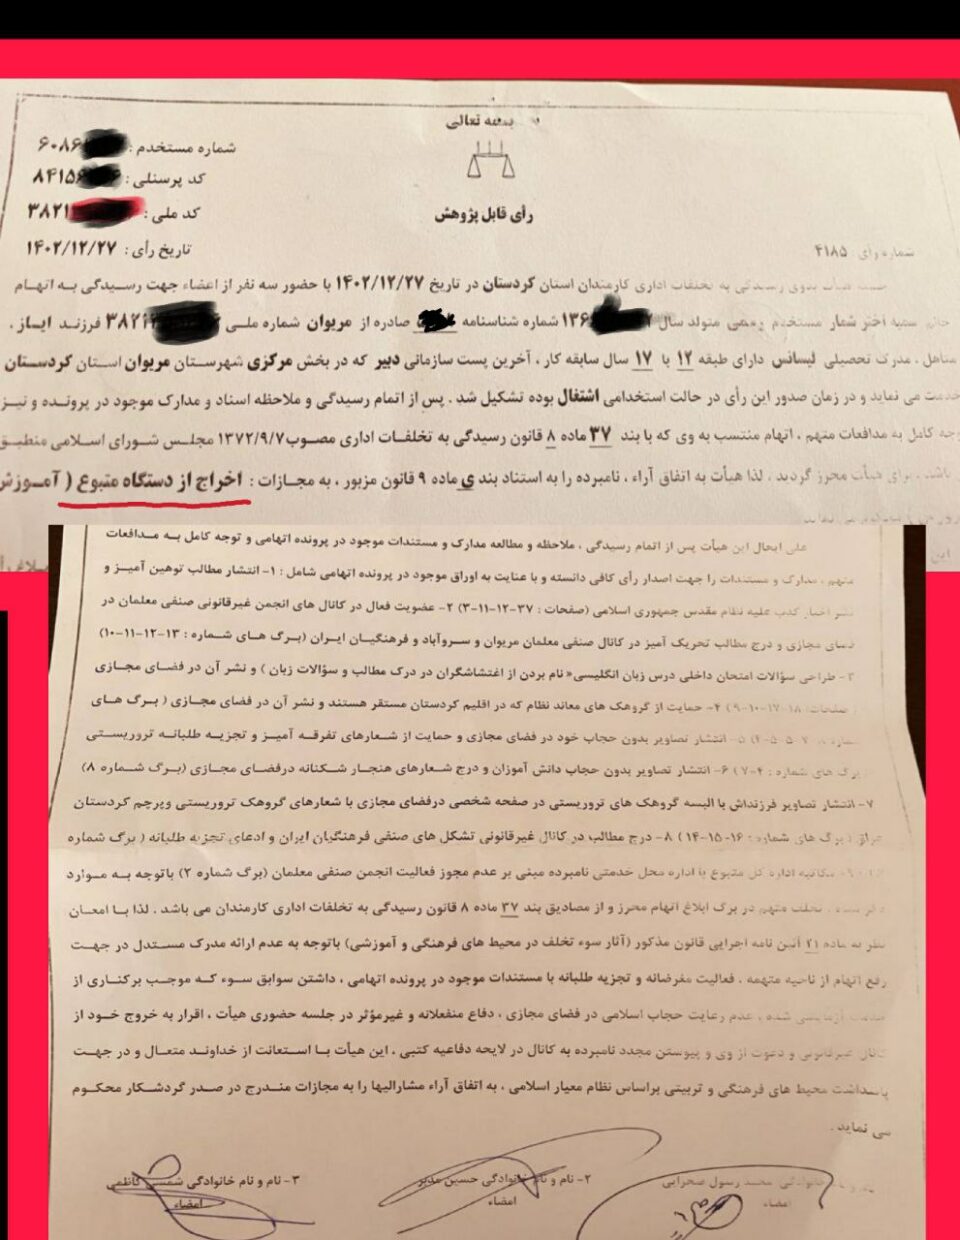 بسمه تعالی
شماره مستخدم : ۶۰۸۶
کد پرسنلی : ۸۴۱۵
کد ملی : ۳۸۲۱
رأی قابل پژوهش
تاریخ رأی : ۱۴۰۲/۱۲/۲۷
شماره رأی : ۴۱۸۵
هیأت بدوی رسیدگی به تخلفات اداری کارمندان استان کردستان در تاریخ ۱۴۰۲/۱۲/۲۷ با حضور سه نفر از اعضاء جهت رسیدگی به اتهام
سمیه اختر شمار مستخدم رسمی متولد سال ۱۳۶ شماره شناسنامه صادره از مریوان شماره ملی ۳۸۲۱ فرزند ایاز ،
متاهل ، مدرک تحصیلی لیسانس دارای طبقه ۱۲ با ۱۷ سال سابقه کار ، آخرین پست سازمانی دبیر که در بخش مرکزی شهرستان مریوان استان کردستان
خدمت می نماید و در زمان صدور این رأی در حالت استخدامی اشتغال بوده تشکیل شد . پس از اتمام رسیدگی و ملاحظه اسناد و مدارک موجود در پرونده و نیز
توجه کامل به مدافعات متهم ، اتهام منتسب به وی که با بند ۳۷ ماده ۸ قانون رسیدگی به تخلفات اداری مصوب ۱۳۷۲/۹/۷ مجلس شورای اسلامی منطبق
باشد ، برای هیأت محرز گردید ، لذا هیأت به اتفاق آراء ، نامبرده را به استناد بند ی ماده ۹ قانون مزبور ، به مجازات : اخراج از دستگاه متبوع ( آموزش
علی ایحال این هیأت پس از اتمام رسیدگی ، ملاحظه و مطالعه مدارک و مستندات موجود در پرونده اتهامی و توجه کامل به مدافعات
متهم ، مدارک و مستندات را جهت اصدار رأی کافی دانسته و با عنایت به اوراق موجود در پرونده اتهامی شامل : ۱- انتشار مطالب توهین آمیز و
نشر اخبار کذب علیه نظام مقدس جمهوری اسلامی (صفحات : ۳۷-۱۲-۱۱-۳) ۲- عضویت فعال در کانال های انجمن غیرقانونی صنفی معلمان در
فضای مجازی و درج مطالب تحریک آمیز در کانال صنفی معلمان مریوان و سروآباد و فرهنگیان ایران (برگ های شماره : ۱۳-۱۲-۱۱-۱۰)
۳- طراحی سؤالات امتحان داخلی درس زبان انگلیسی« نام بردن از اغتشاشگران در درک مطالب و سؤالات زبان ) و نشر آن در فضای مجازی
صفحات: ۱۸-۱۷-۱۰-۹) ۴- حمایت از گروهک های معاند نظام که در اقلیم کردستان مستقر هستند و نشر آن در فضای مجازی ( برگ های
۵- انتشار تصاویر بدون حجاب خود در فضای مجازی و حمایت از شعارهای تفرقه آمیز و تجزیه طلبانه تروریستی
برگ های شماره : ۴-۷) ۶- انتشار تصاویر بدون حجاب دانش آموزان و درج شعارهای هنجار شکنانه درفضای مجازی (برگ شماره ۸)
۷- انتشار تصاویر فرزندانش با البسه گروهک های تروریستی در صفحه شخصی درفضای مجازی با شعارهای گروهک تروریستی وپرچم کردستان
عراق ( برگ های شماره : ۱۶-۱۵-۱۴) ۸- درج مطالب در کانال غیرقانونی تشکل های صنفی فرهنگیان ایران و ادعای تجزیه طلبانه ( برگ شماره
۹- مکاتبه اداره کل متبوع با اداره محل خدمتی نامبرده مبنی بر عدم مجوز فعالیت انجمن صنفی معلمان (برگ شماره ۲) باتوجه به موارد
تخلف متهم در برگ ابلاغ اتهام محرز و از مصادیق بند ۳۷ ماده ۸ قانون رسیدگی به تخلفات اداری کارمندان می باشد . لذا با امعان
نظر به ماده ۲۱ آئین نامه اجرایی قانون مذکور (آثار سوء تخلف در محیط های فرهنگی و آموزشی) باتوجه به عدم ارائه مدرک مستدل در جهت
رفع اتهام از ناحیه متهمه ، فعالیت مغرضانه و تجزیه طلبانه با مستندات موجود در پرونده اتهامی ، داشتن سوابق سوء که موجب برکناری از
شده ، عدم رعایت حجاب اسلامی در فضای مجازی ، دفاع منفعلانه و غیرمؤثر در جلسه حضوری هیأت ، اقرار به خروج خود از
کانال غیرقانونی و دعوت از وی و پیوستن مجدد نامبرده به کانال در لایحه دفاعیه کتبی ، این هیأت با استعانت از خداوند متعال و در جهت
پاسداشت محیط های فرهنگی و تربیتی براساس نظام معیار اسلامی ، به اتفاق آراء مشارالیها را به مجازات مندرج در صدر گردشکار محکوم
می نماید .
نام خانوادگی محمد رسول صحرایی
امضاء
۲- نام و نام خانوادگی حسین مدبر
امضاء
۳- نام و نام خانوادگی شمسی کاظمی
امضاء